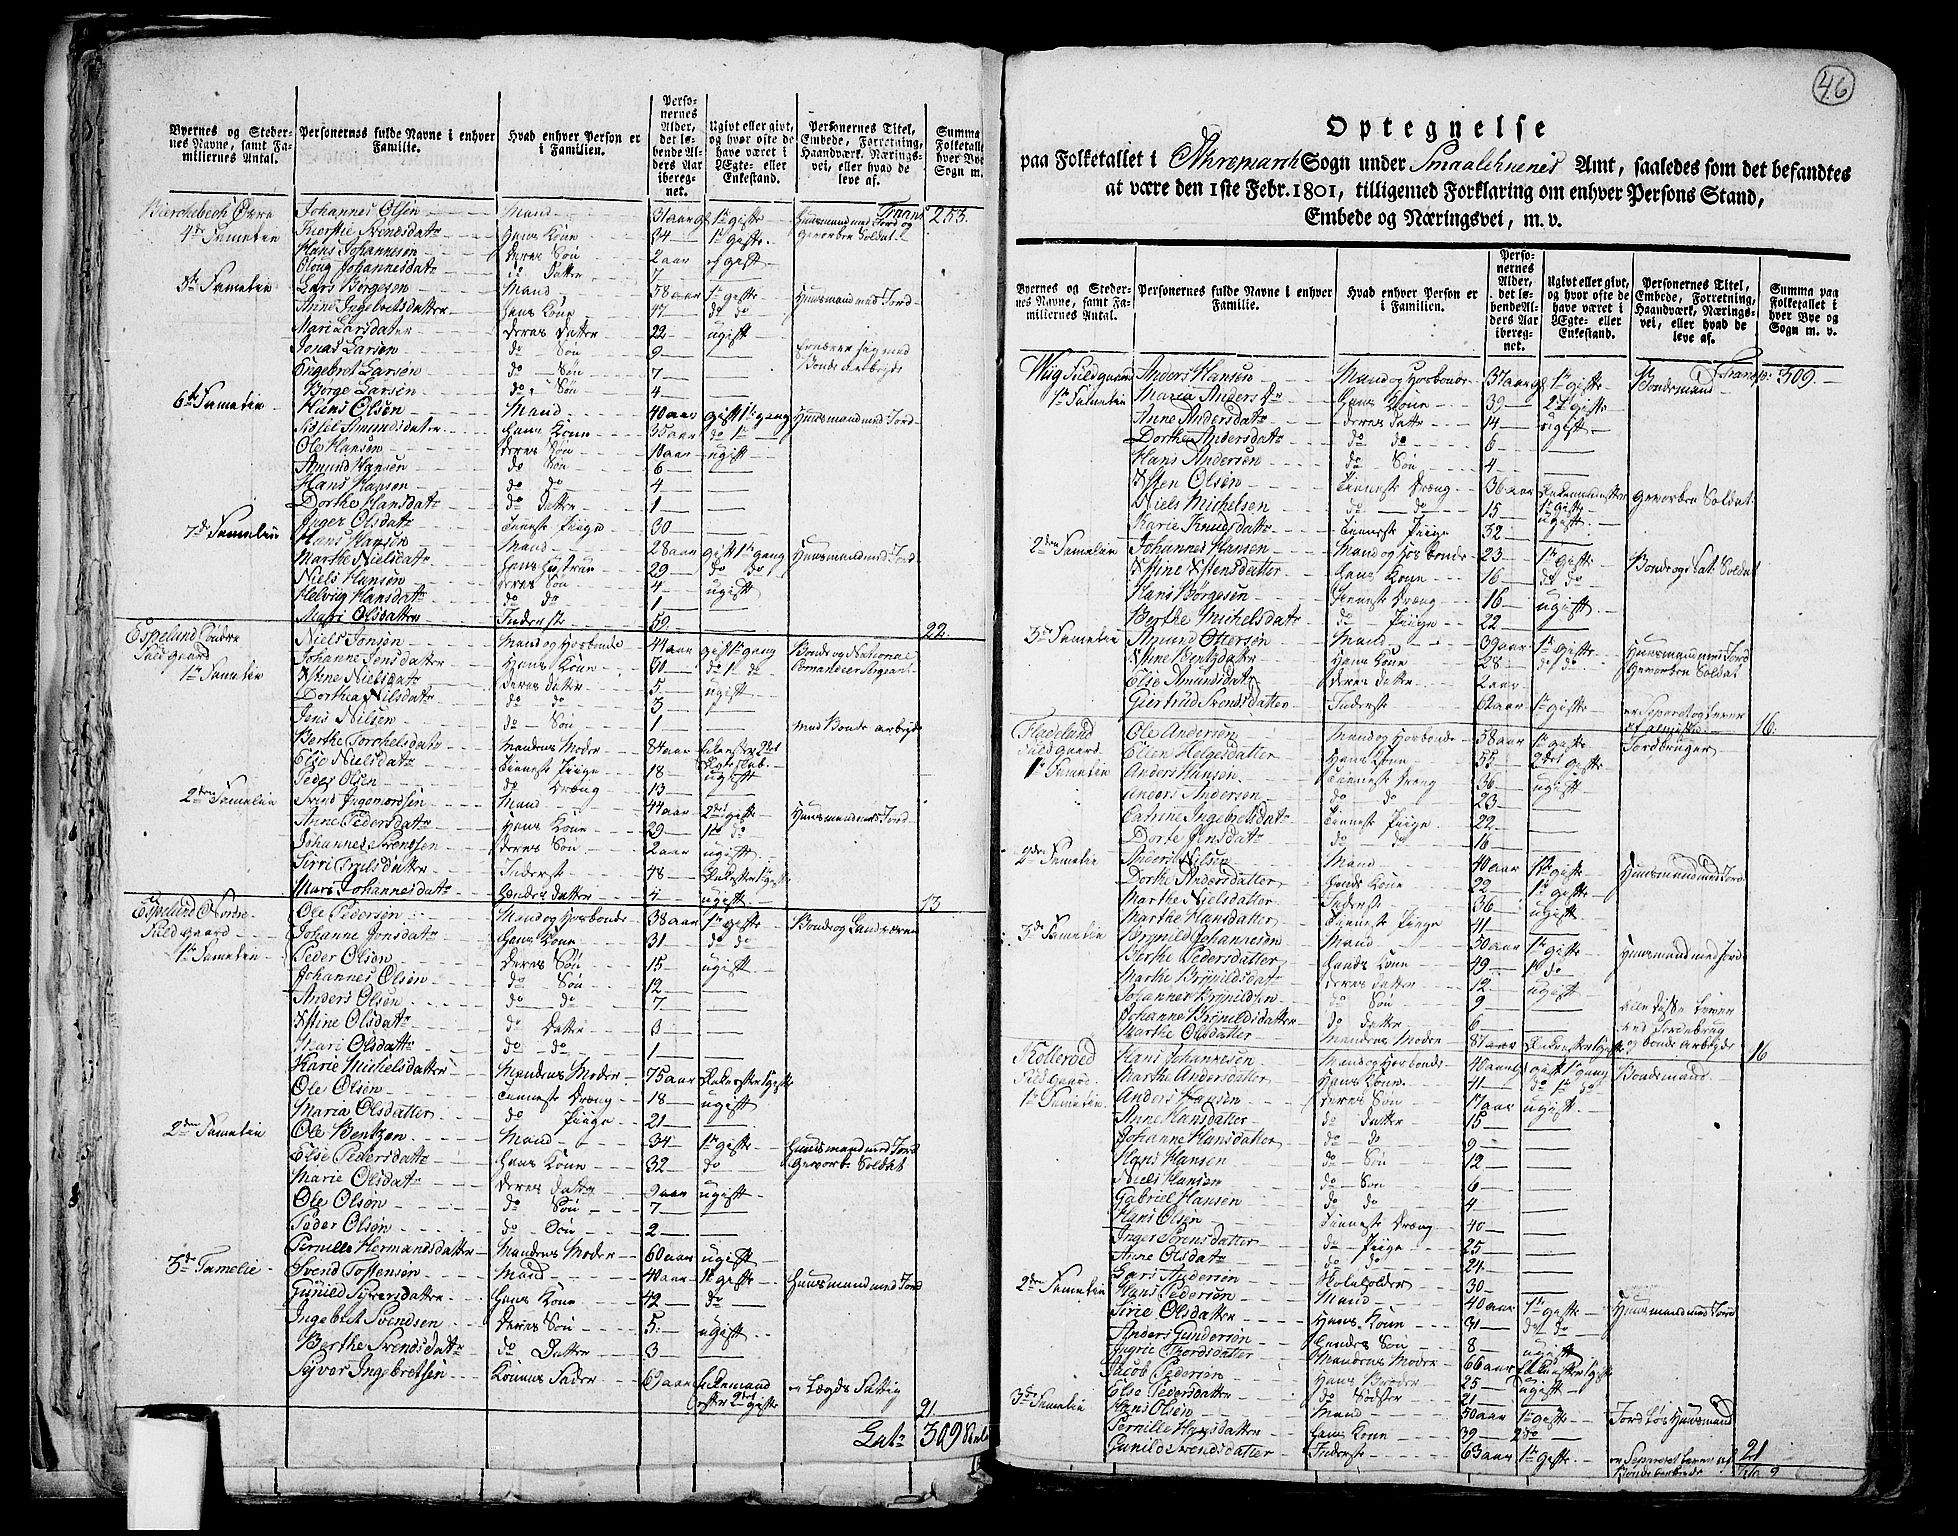 Byernes og Steder-
nes Navne, samt Fa-
miliernes Antal.
Personernes fulde Navne i enhver
Familie.
Hvad enhver Person er
i Familien.
Perso-
nernes
Alder,
det lø-
bende Al-
ders Aar
iberegnet.
Ugivt eller givt,
og hvor ofte de
have været i
Ægte- eller
Enkestand.
Personernes Titel,
Embede, Forretning,
Haandværk, Nærings-
vei, eller hvad de
leve af.
Summa
Folketallet
hver Bye
Sogn m.
Johannes Olsen Mand 31 aar 1te gifte Huusmand med Jord og 253.
4de Familie Kierstie Svendsdatr Hans Kone 34 1te gifte Gevorben Soldat
Hans Johannesen Deres Søn 2 aar
Oloug Johannesdatr do Datter 7
5te Familie Lars Børgesen Mand 58 aar 1te gifte Huusmand med Jord
Anne Ingebretsdatter Hans Kone 47 do do
Mari Larsdatter Deres Datter 22 ugift
Jonas Larsen do Søn 9 Ernærer sig med
Engebret Larsen do Søn 7 Bonde Arbeyde
Børge Larsen do Søn 4
6te Familie Hans Olsen Mand 40 aar gift 1te gang Huusmand med Jord
Assel Amundsdatr Hans Kone 35 aar do 1te
Ole Hansen Deres Søn 10 aar ugift
Amund Hansen do Søn 6
Hans Hansen do do 4
Dorthe Hansdatr do Datter 1
Inger Olsdatr Tieneste Piige 30
7de Familie Hans Hansen Mand 28 aar gift 1te gang Huusmand med Jord
Marthe Nielsdatr Hans Hustrue 29 do do
Niels Hansen Deres Søn 4 ugift
Helvig Hansdatr do do 1
Mari Olsdatter Inderste 59 22.
Espelund Søndre Niels Jonsen Mand og Hosbonde 44 aar gift 1te gang Bonde og Nationale
Fuld gaard Johanne Jonsdatter Hans Kone 30 do 1te do
1te Familie Stine Nielsdatr Deres Datter 5 ugift
Dorthea Nilsdatr do do 3
Jens Nilsen do Søn 1 med Bonde arbeyde
Berthe Torchelsdatr Mandens Moder 84 aar
Else Nielsdatr Tieneste Piige 18 ugift
Peder Olsen do Dræng 13
2den Familie Svend Ingemordsen Mand 44 aar 2det gifte Huusmand med Jord
Anne Pedersdatr Hans Kone 29 1te do
Johannes Svensen Deres Søn 2 aar ugift
Siri Truelsdatter Inderste 48
Mari Johannesdatr Hendes Datter 4 ugift 13.
Espelund Nordre Ole Pedersen Mand og Hosbonde 38 aar 1te gifte
Fuld gaard Johanne Jonsdatr Hans Kone 31 do do
1te Familie Peder Olsen Deres Søn 15 ugift
Johannes Olsen do Søn 12
Anders Olsen do do 7
Stine Olsdatr do Datter 3
Mari Olsdatr do do 1
Karie Michelsdatter Mandens Moder 75 aar
Ole Olsen Tieneste Dræng 18 ugift
Maria Olsdatter do Piige 21
2den Familie Ole Bentzen Mand 34 1te gifte Huusmand med Jord
Else Pedersdatr Hans Kone 32 do Gevorb. Soldat
Marie Olsdatr Deres Datter 9 aar ugift
Ole Olsen do Søn 7
Peder Olsen do Søn 2
Pernille Hermandsdatter Mandens Moder 60 aar ugift
3de Familie Svend Tostensen Mand 40 aar 1te gifte Huusmand med Jord
Gunild Syversdatter Hans Kone 42 do
Ingebret Svendsen Deres Søn 5 ugift
Berthe Svendsdatr do Datter 3
Syver Ingebretsen Konens Fader 69 aar Enkemand
efter 2det gifte 21
Lat. 309
46
Optegnelse
paa Folketallet i Ahremarch Sogn under Smaalehnenes Amt, saaledes som det befandtes
at være den 1ste Febr. 1801, tilligemed Forklaring om enhver Persons Stand,
Embede og Næringsvei, m. v.
Byernes og Steder-
nes Navne, samt Fa-
miliernes Antal.
Personernes fulde Navne i enhver
Familie.
Hvad enhver Person er
i Familien.
Perso-
nernes
Alder,
det lø-
bende Al-
ders Aar
ibereg-
net.
Ugivt eller givt,
og hvor ofte de
have været i
Ægte- eller
Enkestand.
Personernes Titel,
Embede, Forretning,
Haandværk, Nærings-
vei, eller hvad de
leve af.
Summa paa
Folketallet i
hver Bye og
Sogn m. v.
Wiig Fuldgaard Anders Hansen Mand og Hosbonde 37 aar 1te gifte Bondemand Transp: 309.
1te Familie Maria Andersdr Hans Kone 39 2det gifte
Anne Andersdatr Deres Datter 14 ugift
Dorthe Andersdatr do do 6
Hans Andersen do Søn 4
Sten Olsen Tieneste Dræng 36 aar Gevorben Soldat
Niels Michelsen do do 15 ugift
Karie Knudsdatr Tieneste Piige 32
2den Familie Johannes Hansen Mand og Hosbonde 23 1te gifte
Stine Stensdatter Hans Kone 16 do do
Hans Børgesen Tieneste Dræng 16 ugift
Berthe Michelsdatr do Piige 22
3de Familie Amund Ottersen Mand 39 aar 1te gifte Huusmand med Jord
Stine Bentzdatter Hans Kone 28 do do Gevorben Soldat
Else Amundsdatr Deres Datter 2 aar
Giertrud Svendsdatter Inderste 62 aar 1te gifte 16.
Fladelund Ole Andersen Mand og Hosbonde 58 aar 1te gifte Jordbruger
Fuld gaard Ellen Helgesdatter Hans Kone 55 2det gifte
1te Familie Anders Hansen Tieneste Dræng 36 ugift
Anders Andersen do do 23
Catrine Ingebretsdatr Tieneste Piige 22
Dorte Jensdatr do do 16
2den Familie Anders Nilsen Mand 40 aar 1te gifte Huusmand med Jord
Dorthe Andersdatter Hans Kone 22 1te gifte
Marthe Nielsdatter Inderste 36 ugift
Marthe Hansdatter Tieneste Piige 41
3de Familie Brynild Johannesen Mand 50 aar 1te gifte Huusmand med Jord
Berthe Pedersdatter Hans Kone 49 1te do
Marthe Brynildsdatr Deres Datter 12 ugift
Johannes Brynildsen do Søn 9
Johanne Brynildsdatter do Datter 6
Marthe Olsdatter Mandens Moder 87 aar og bonde arbeyde 16
Kollerød Hans Johannesen Mand og Hosbonde 40 aar gift 1te gang Bondemand
Fuld Gaard Marthe Andersdatter Hans Kone 41 do 1te do
1te Familie Anders Hansen Deres Søn 17 aar ugift
Anne Hansdatter do Datter 15
Johanne Hansdatter do do 9
Hans Hansen do Søn 12
Niels Hansen do Søn 6
Gabriel Hansen do do 4
Hans Olsen Tieneste Dræng 40
Inger Svensdatter do Piige 25
Anne Olsdatr do do 24
Lars Andersen 30
2den Familie Hans Pedersen Mand 40 aar 1te gifte Huusmand med Jord
Sirie Olsdatter Hans Kone 31 do do
Anders Gundersen Hendes Søn 8 ugift
Ingrie Thordsdatter Mandens Moder 66 aar
Jacob Pedersen Hans Broder 25 ugift
Else Pedersdatter do Søster 21
3de Familie Hans Olsen Mand 50 aar 1te gifte Jordløs Huusmand
Pernille Hansdatter Hans Kone 39 2 do
Gunild Svendsdatter Inderste 63 aar 1te gifte 21